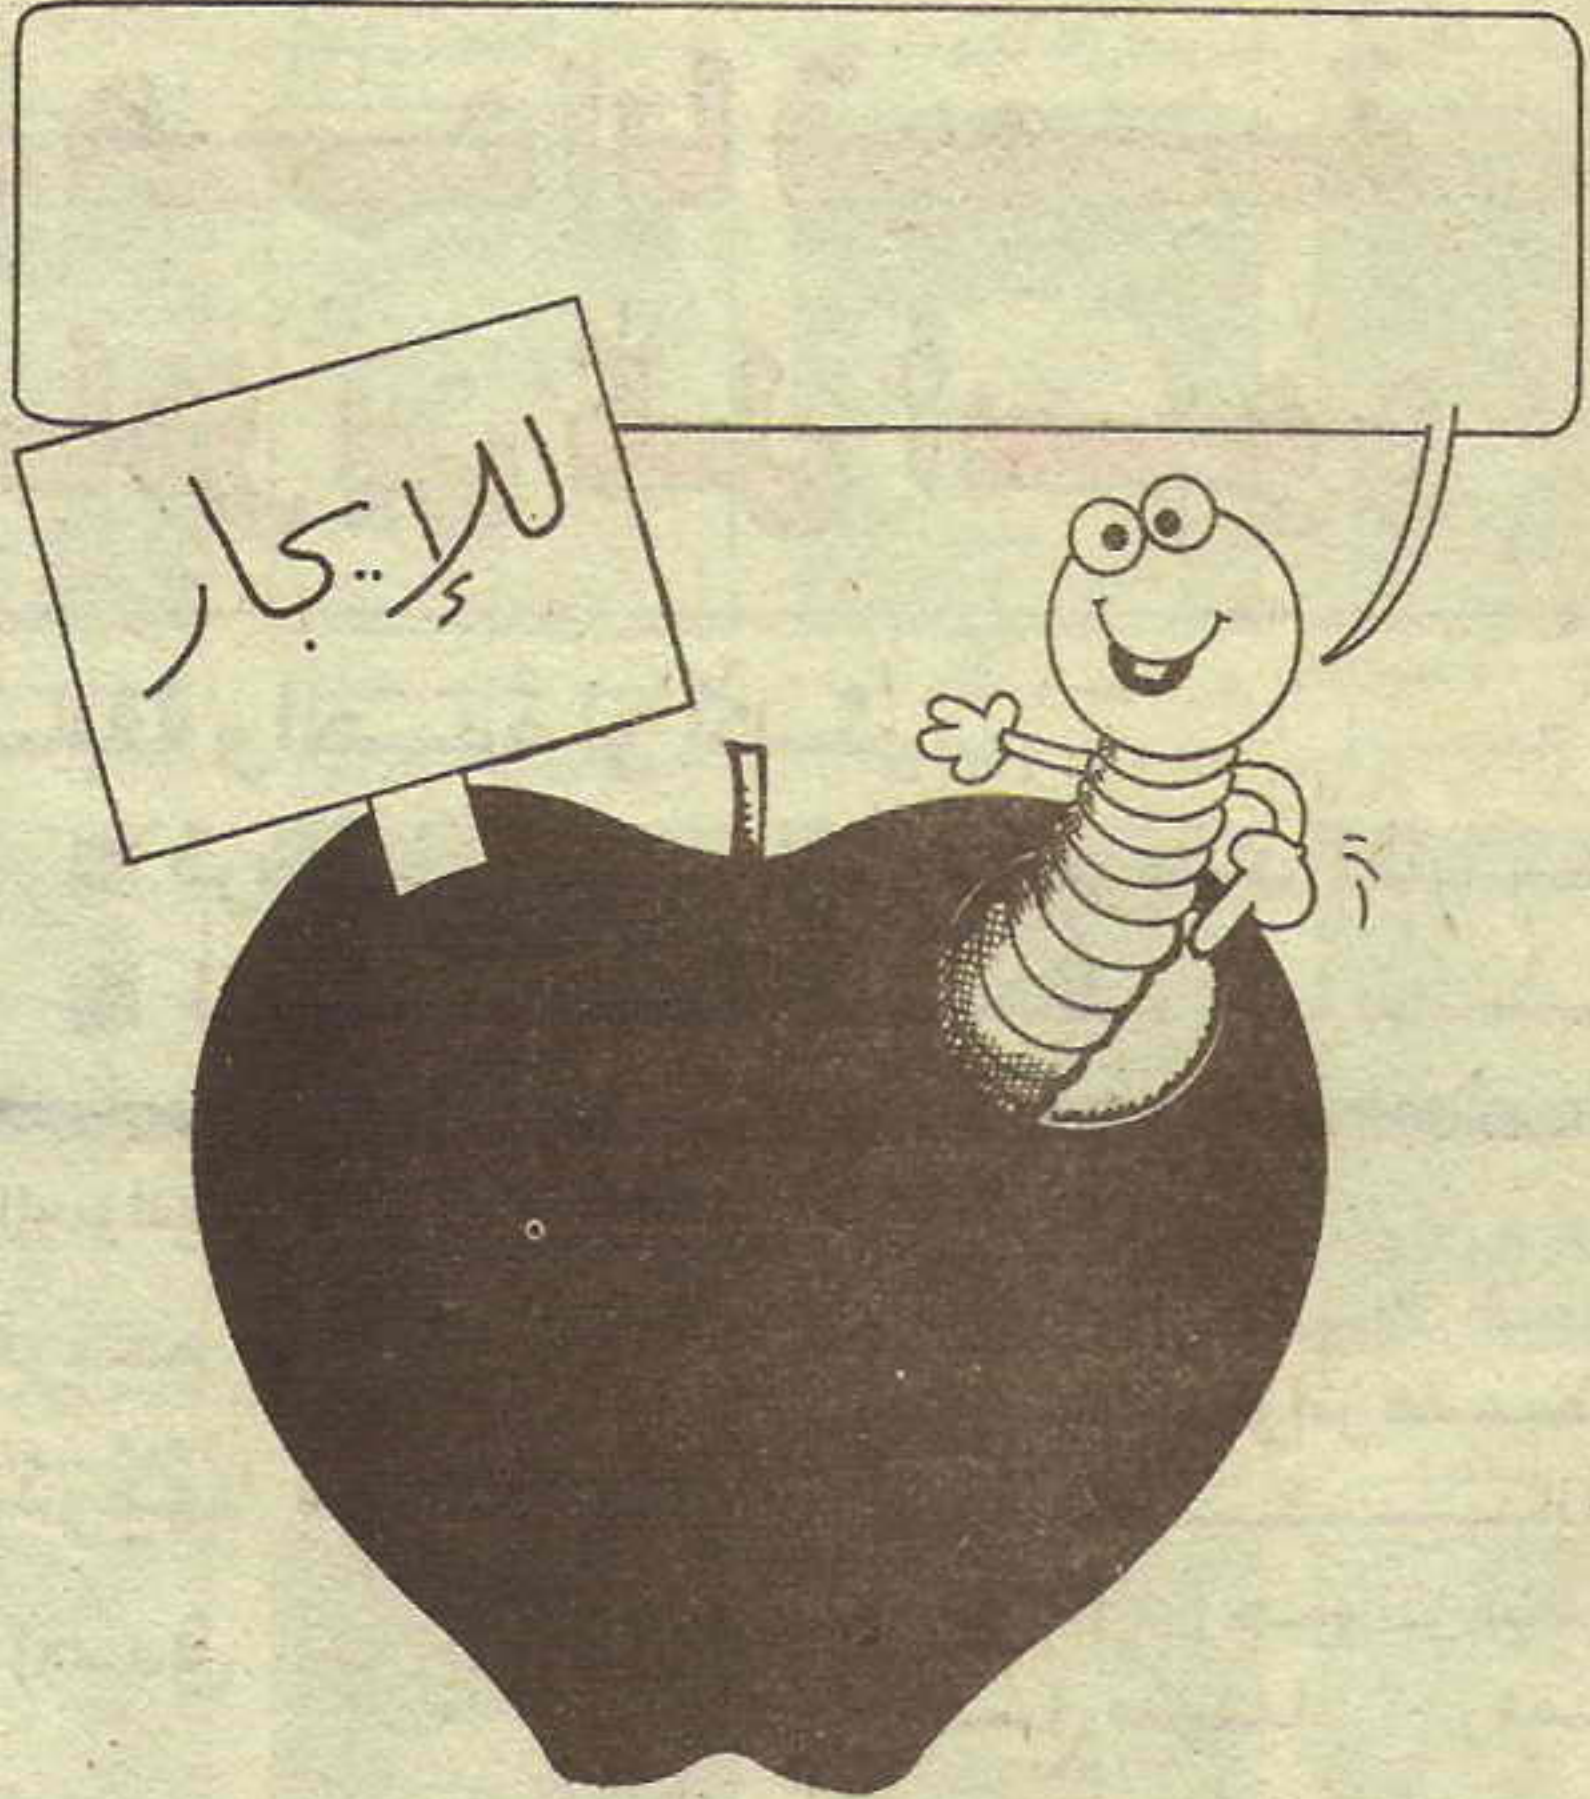 للإيجار